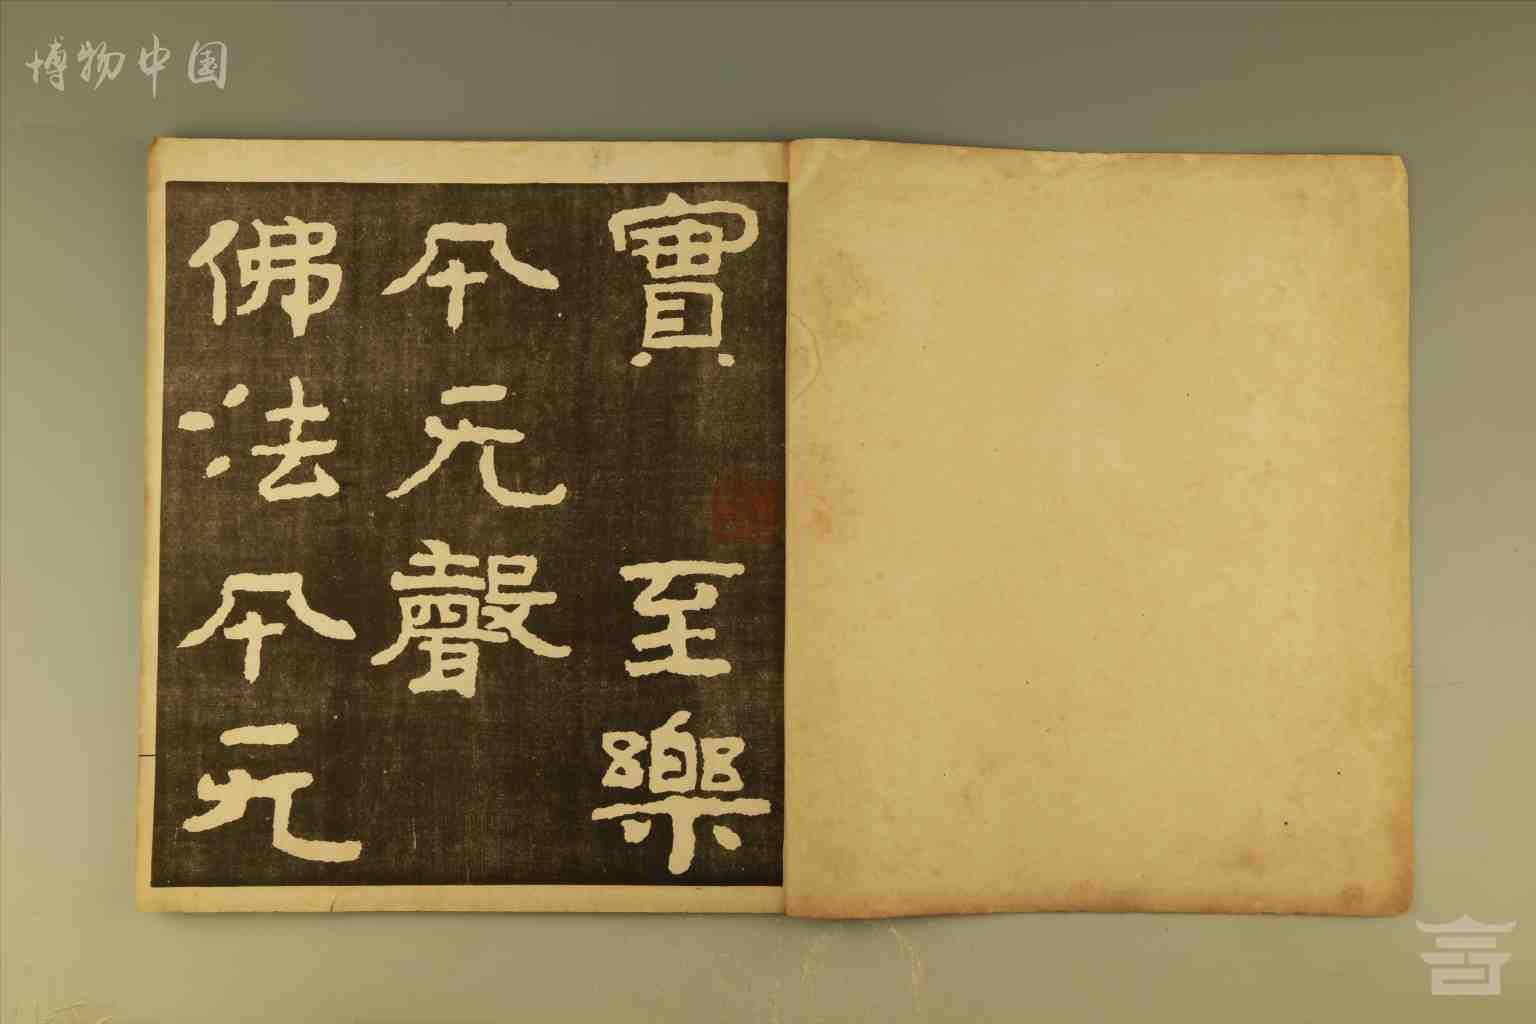 博物中国
實 至樂
夲无聲
佛法夲无